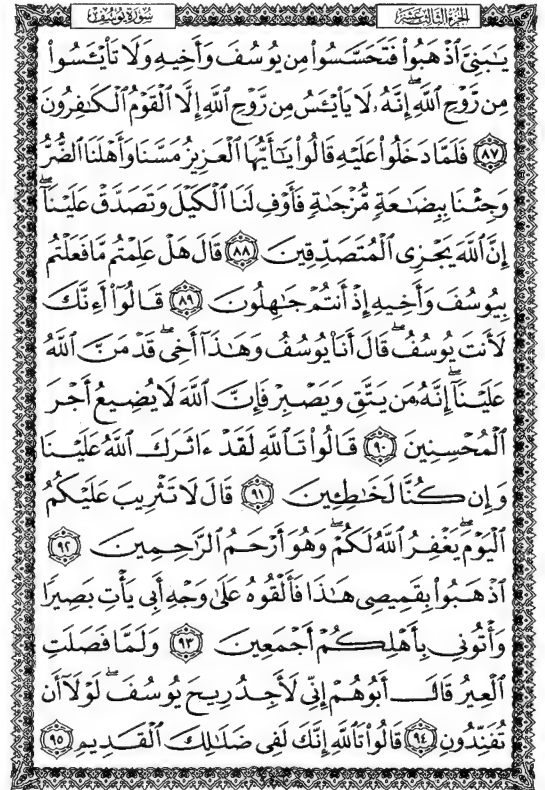 سُورَةُ يُوسُف الجُزْءُ الثَّالِثَ عَشَر
يَٰبَنِىَّ ٱذْهَبُوا۟ فَتَحَسَّسُوا۟ مِن يُوسُفَ وَأَخِيهِ وَلَا تَا۟يْـَٔسُوا۟
مِن رَّوْحِ ٱللَّهِ ۖ إِنَّهُۥ لَا يَا۟يْـَٔسُ مِن رَّوْحِ ٱللَّهِ إِلَّا ٱلْقَوْمُ ٱلْكَٰفِرُونَ
٨٧ فَلَمَّا دَخَلُوا۟ عَلَيْهِ قَالُوا۟ يَٰٓأَيُّهَا ٱلْعَزِيزُ مَسَّنَا وَأَهْلَنَا ٱلضُّرُّ
وَجِئْنَا بِبِضَٰعَةٍ مُّزْجَىٰةٍ فَأَوْفِ لَنَا ٱلْكَيْلَ وَتَصَدَّقْ عَلَيْنَآ ۖ
إِنَّ ٱللَّهَ يَجْزِى ٱلْمُتَصَدِّقِينَ ٨٨ قَالَ هَلْ عَلِمْتُم مَّا فَعَلْتُم
بِيُوسُفَ وَأَخِيهِ إِذْ أَنتُمْ جَٰهِلُونَ ٨٩ قَالُوٓا۟ أَءِنَّكَ
لَأَنتَ يُوسُفُ ۖ قَالَ أَنَا۠ يُوسُفُ وَهَٰذَآ أَخِى ۖ قَدْ مَنَّ ٱللَّهُ
عَلَيْنَآ ۖ إِنَّهُۥ مَن يَتَّقِ وَيَصْبِرْ فَإِنَّ ٱللَّهَ لَا يُضِيعُ أَجْرَ
ٱلْمُحْسِنِينَ ٩٠ قَالُوا۟ تَٱللَّهِ لَقَدْ ءَاثَرَكَ ٱللَّهُ عَلَيْنَا
وَإِن كُنَّا لَخَٰطِـِٔينَ ٩١ قَالَ لَا تَثْرِيبَ عَلَيْكُمُ
ٱلْيَوْمَ ۖ يَغْفِرُ ٱللَّهُ لَكُمْ ۖ وَهُوَ أَرْحَمُ ٱلرَّٰحِمِينَ ٩٢
ٱذْهَبُوا۟ بِقَمِيصِى هَٰذَا فَأَلْقُوهُ عَلَىٰ وَجْهِ أَبِى يَأْتِ بَصِيرًا
وَأْتُونِى بِأَهْلِكُمْ أَجْمَعِينَ ٩٣ وَلَمَّا فَصَلَتِ
ٱلْعِيرُ قَالَ أَبُوهُمْ إِنِّى لَأَجِدُ رِيحَ يُوسُفَ ۖ لَوْلَآ أَن
تُفَنِّدُونِ ٩٤ قَالُوا۟ تَٱللَّهِ إِنَّكَ لَفِى ضَلَٰلِكَ ٱلْقَدِيمِ ٩٥